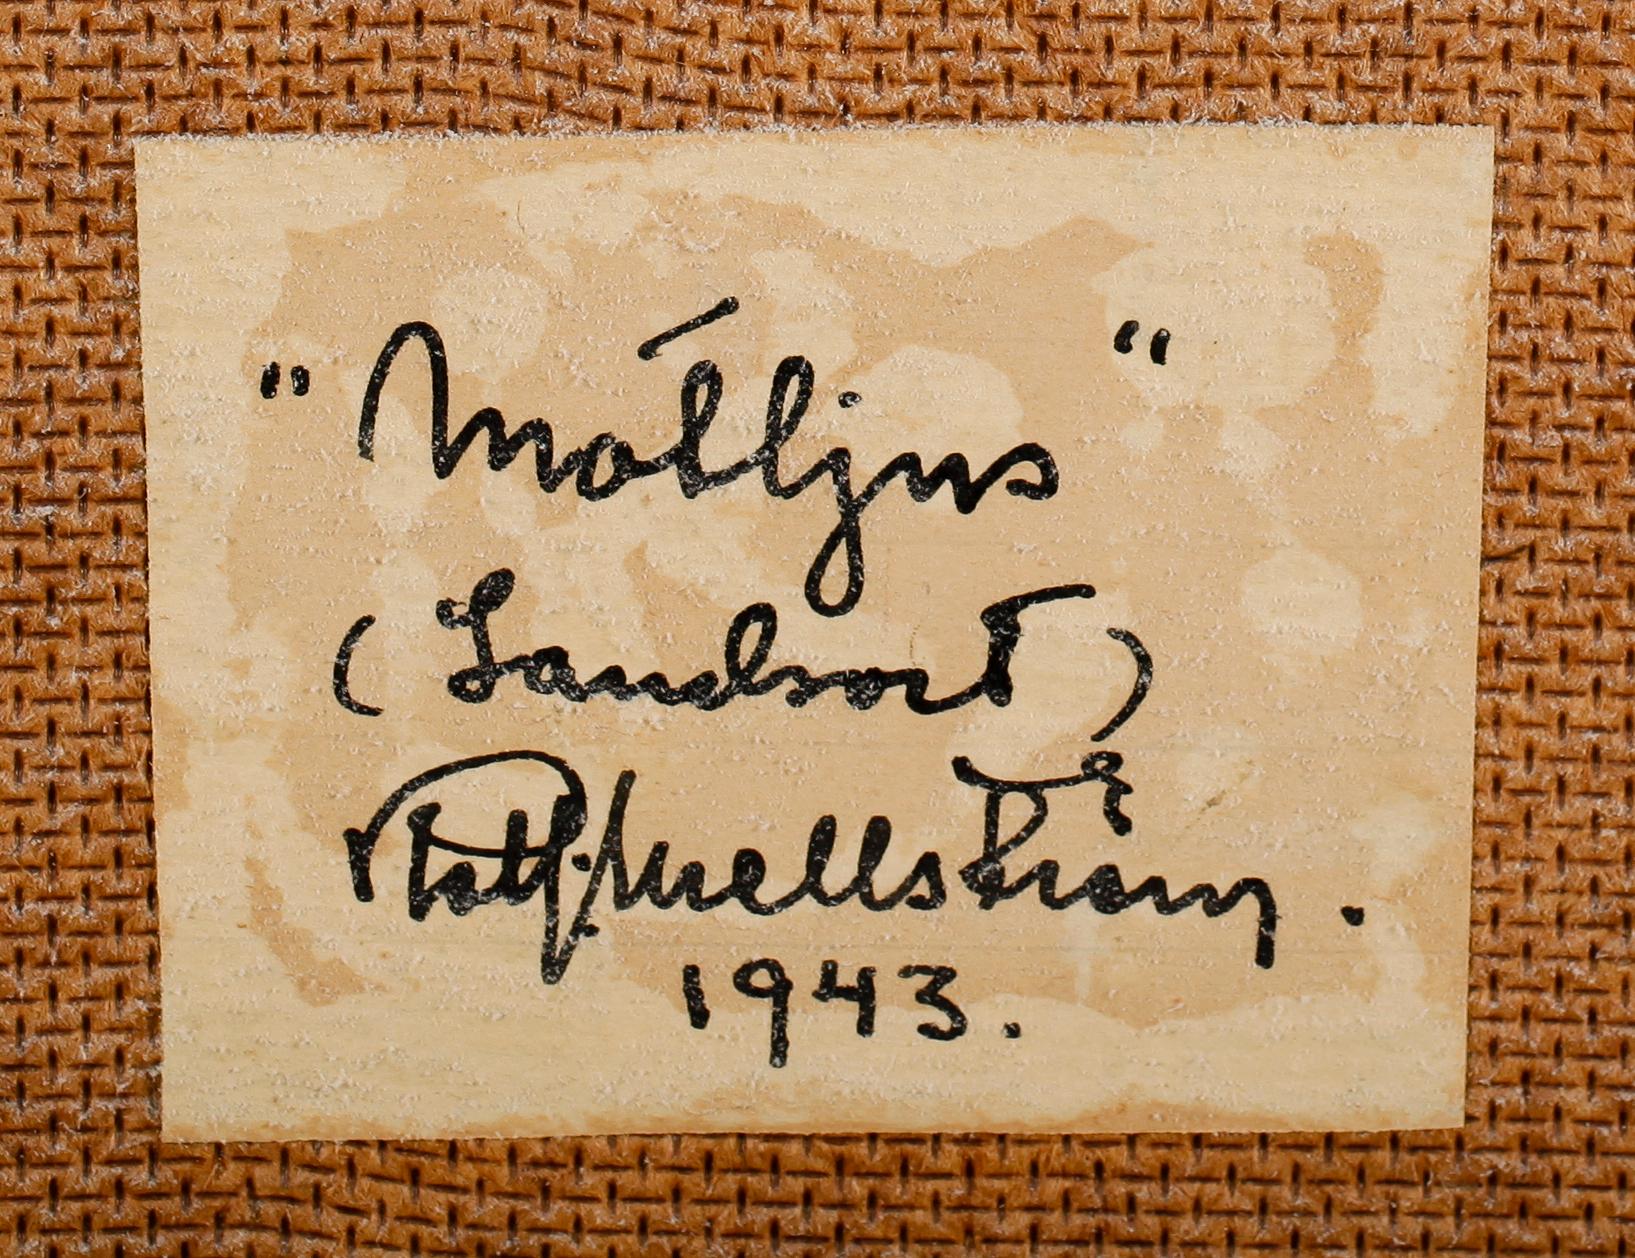 "Mólljus"
(Landsort)
Rolf Mellström.
1943.